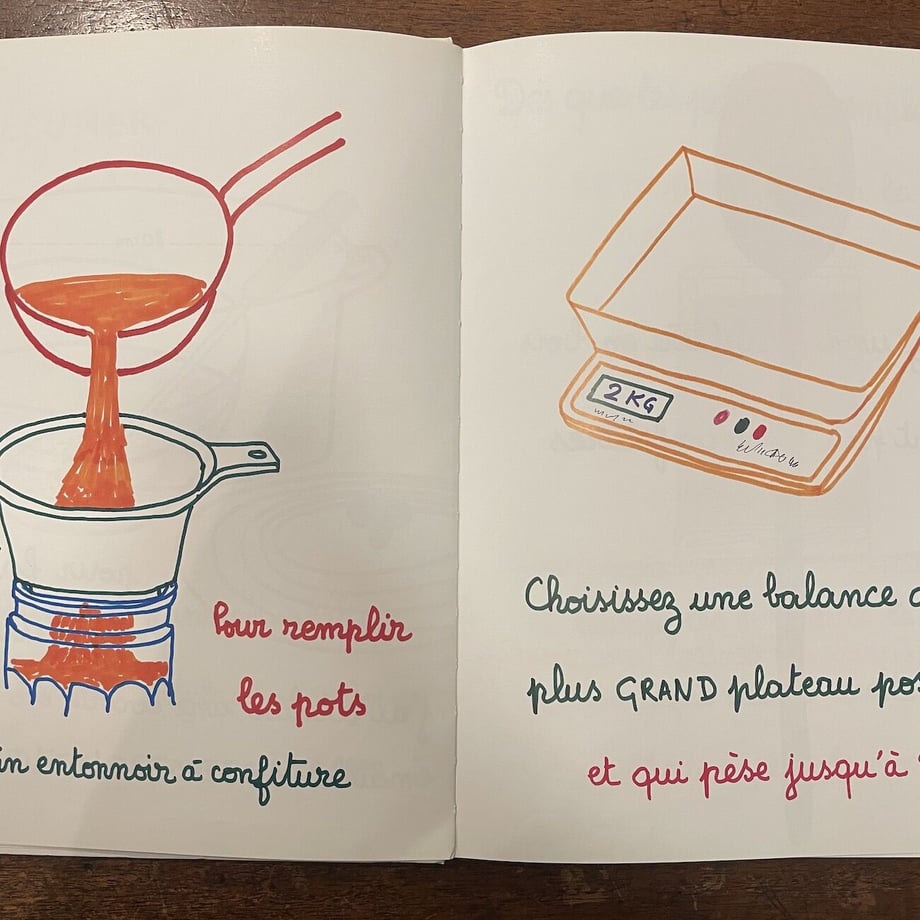 Pour remplir
les pots
un entonnoir à confiture
2 KG
Choisissez une balance
plus GRAND plateau
et qui pèse jusqu'à